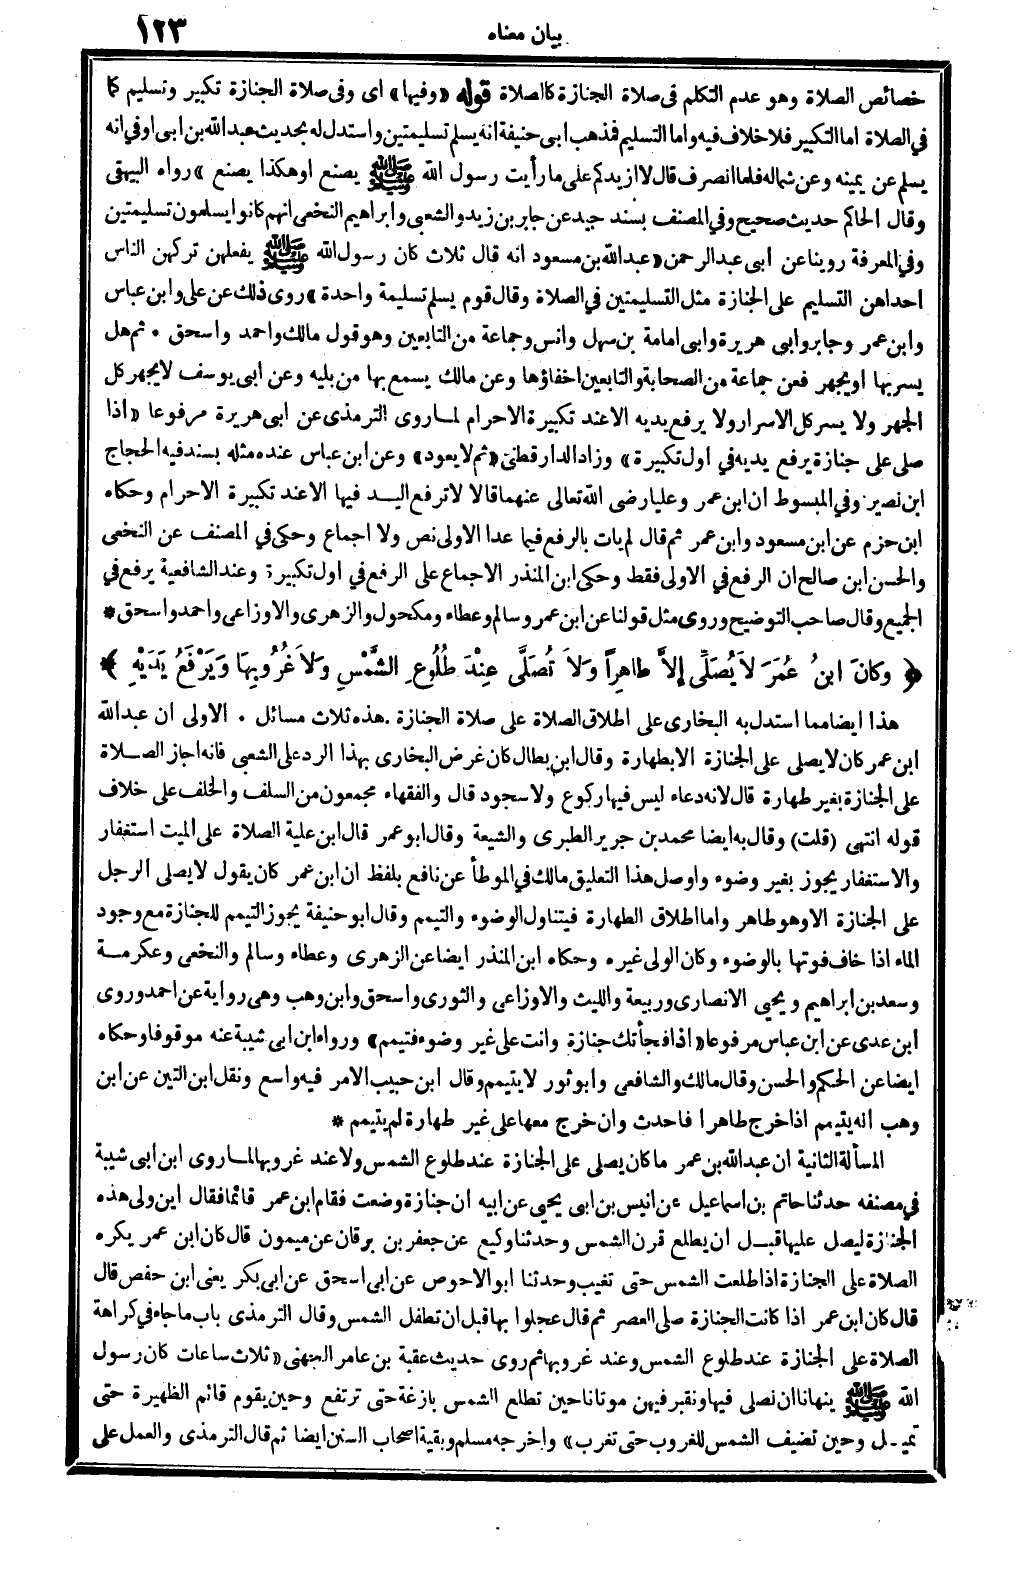 بيان معناه ١٢٣
خصائص الصلاة وهو عدم التكلم فى صلاة الجنازة كالصلاة قوله «وفيها» اى وفى صلاة الجنازة تكبير وتسليم كما
فى الصلاة اما التكبير فلا خلاف فيه واما التسليم فمذهب ابى حنيفة انه يسلم تسليمتين واستدل له بحديث عبدالله بن ابى اوفى انه
يسلم عن يمينه وعن شماله فلما انصرف قال لا ازيدكم على ما رأيت رسول الله ﷺ يصنع او هكذا يصنع» رواه البيهقى
وقال الحاكم حديث صحيح وفى المصنف بسند جيد عن جابر بن زيد والشعبى وابراهيم النخعى انهم كانوا يسلمون تسليمتين
وفى المعرفة روينا عن ابى عبد الرحمن «عبدالله بن مسعود انه قال ثلاث كان رسول الله ﷺ يفعلهن تركهن الناس
احداهن التسليم على الجنازة مثل التسليمتين فى الصلاة وقال قوم يسلم تسليمة واحدة» روى ذلك عن على وابن عباس
وابن عمر وجابر وابى هريرة وابى امامة بن سهل وانس وجماعة من التابعين وهو قول مالك واحمد واسحق ٠ ثم هل
يسر بها او يجهر فعن جماعة من الصحابة والتابعين اخفاؤها وعن مالك يسمع بها من يليه وعن ابى يوسف لا يجهر كل
الجهر ولا يسر كل الاسرار ولا يرفع يديه الا عند تكبيرة الاحرام لما روى الترمذى عن ابى هريرة مرفوعا «اذا
صلى على جنازة يرفع يديه فى اول تكبيرة» وزاد الدارقطنى «ثم لا يعود» وعن ابن عباس عنده مثله بسند فيه الحجاج
ابن نصير وفى المبسوط ان ابن عمر وعليا رضى الله تعالى عنهما قالا لا ترفع اليد فيها الا عند تكبيرة الاحرام وحكاه
ابن حزم عن ابن مسعود وابن عمر ثم قال لم يات بالرفع فيما عدا الاولى نص ولا اجماع وحكى فى المصنف عن النخعى
والحسن ابن صالح ان الرفع فى الاولى فقط وحكى ابن المنذر الاجماع على الرفع فى اول تكبيرة وعند الشافعية يرفع فى
الجميع وقال صاحب التوضيح وروى مثل قولنا عن ابن عمر وسالم وعطاء ومكحول والزهرى والاوزاعى واحمد واسحق *
﴿ وَكانَ ابنُ عُمَرَ لاَ يُصَلِّى إلاَّ طاهِراً وَلاَ تُصَلَّى عِنْدَ طُلُوعِ الشَّمْسِ وَلاَ غُرُوبِهَا وَيَرْفَعُ يَدَيْهِ ﴾
هذا ايضا مما استدل به البخارى على اطلاق الصلاة على صلاة الجنازة . هذه ثلاث مسائل ٠ الاولى ان عبدالله
ابن عمر كان لا يصلى على الجنازة الا بطهارة وقال ابن بطال كان غرض البخارى بهذا الرد على الشعبى فانه اجاز الصلاة
على الجنازة بغير طهارة قال لانه دعاء ليس فيها ركوع ولا سجود قال والفقهاء مجمعون من السلف والخلف على خلاف
قوله انتهى (قلت) وقال به ايضا محمد بن جرير الطبرى والشيعة وقال ابو عمر قال ابن علية الصلاة على الميت استغفار
والاستغفار يجوز بغير وضوء واوصل هذا التعليق مالك فى الموطأ عن نافع بلفظ ان ابن عمر كان يقول لا يصلى الرجل
على الجنازة الا وهو طاهر واما اطلاق الطهارة فيتناول الوضوء والتيمم وقال ابو حنيفة يجوز التيمم للجنازة مع وجود
الماء اذا خاف فوتها بالوضوء وكان الولى غيره وحكاه ابن المنذر ايضا عن الزهرى وعطاء وسالم والنخعى وعكرمة
وسعد بن ابراهيم ويحيى الانصارى وربيعة والليث والاوزاعى والثورى واسحق وابن وهب وهى رواية عن احمد وروى
ابن عدى عن ابن عباس مرفوعا «اذا فجأتك جنازة وانت على غير وضوء فتيمم» ورواه ابن ابى شيبة عنه موقوفا وحكاه
ايضا عن الحكم والحسن وقال مالك والشافعى وابو ثور لا يتيمم وقال ابن حبيب الامر فيه واسع ونقل ابن التين عن ابن
وهب انه يتيمم اذا خرج طاهرا فاحدث وان خرج معها على غير طهارة لم يتيمم *
المسألة الثانية ان عبدالله بن عمر ما كان يصلى على الجنازة عند طلوع الشمس ولا عند غروبها لما روى ابن ابى شيبة
فى مصنفه حدثنا حاتم بن اسماعيل عن انيس بن ابى يحيى عن ابيه ان جنازة وضعت فقام ابن عمر قائما فقال اين ولى هذه
الجنازة ليصل عليها قبل ان يطلع قرن الشمس وحدثنا وكيع عن جعفر بن برقان عن ميمون قال كان ابن عمر يكره
الصلاة على الجنازة اذا طلعت الشمس حتى تغيب وحدثنا ابو الاحوص عن ابى اسحق عن ابى بكر يعنى ابن حفص قال
قال كان ابن عمر اذا كانت الجنازة صلى العصر ثم قال عجلوا بها قبل ان تطفل الشمس وقال الترمذى باب ما جاء فى كراهة
الصلاة على الجنازة عند طلوع الشمس وعند غروبها ثم روى حديث عقبة بن عامر الجهنى «ثلاث ساعات كان رسول
الله ﷺ ينهانا ان نصلى فيها ونقبر فيهن موتانا حين تطلع الشمس بازغة حتى ترتفع وحين يقوم قائم الظهيرة حتى
تميل وحين تضيف الشمس للغروب حتى تغرب» واخرجه مسلم وبقية اصحاب السنن ايضا ثم قال الترمذى والعمل على